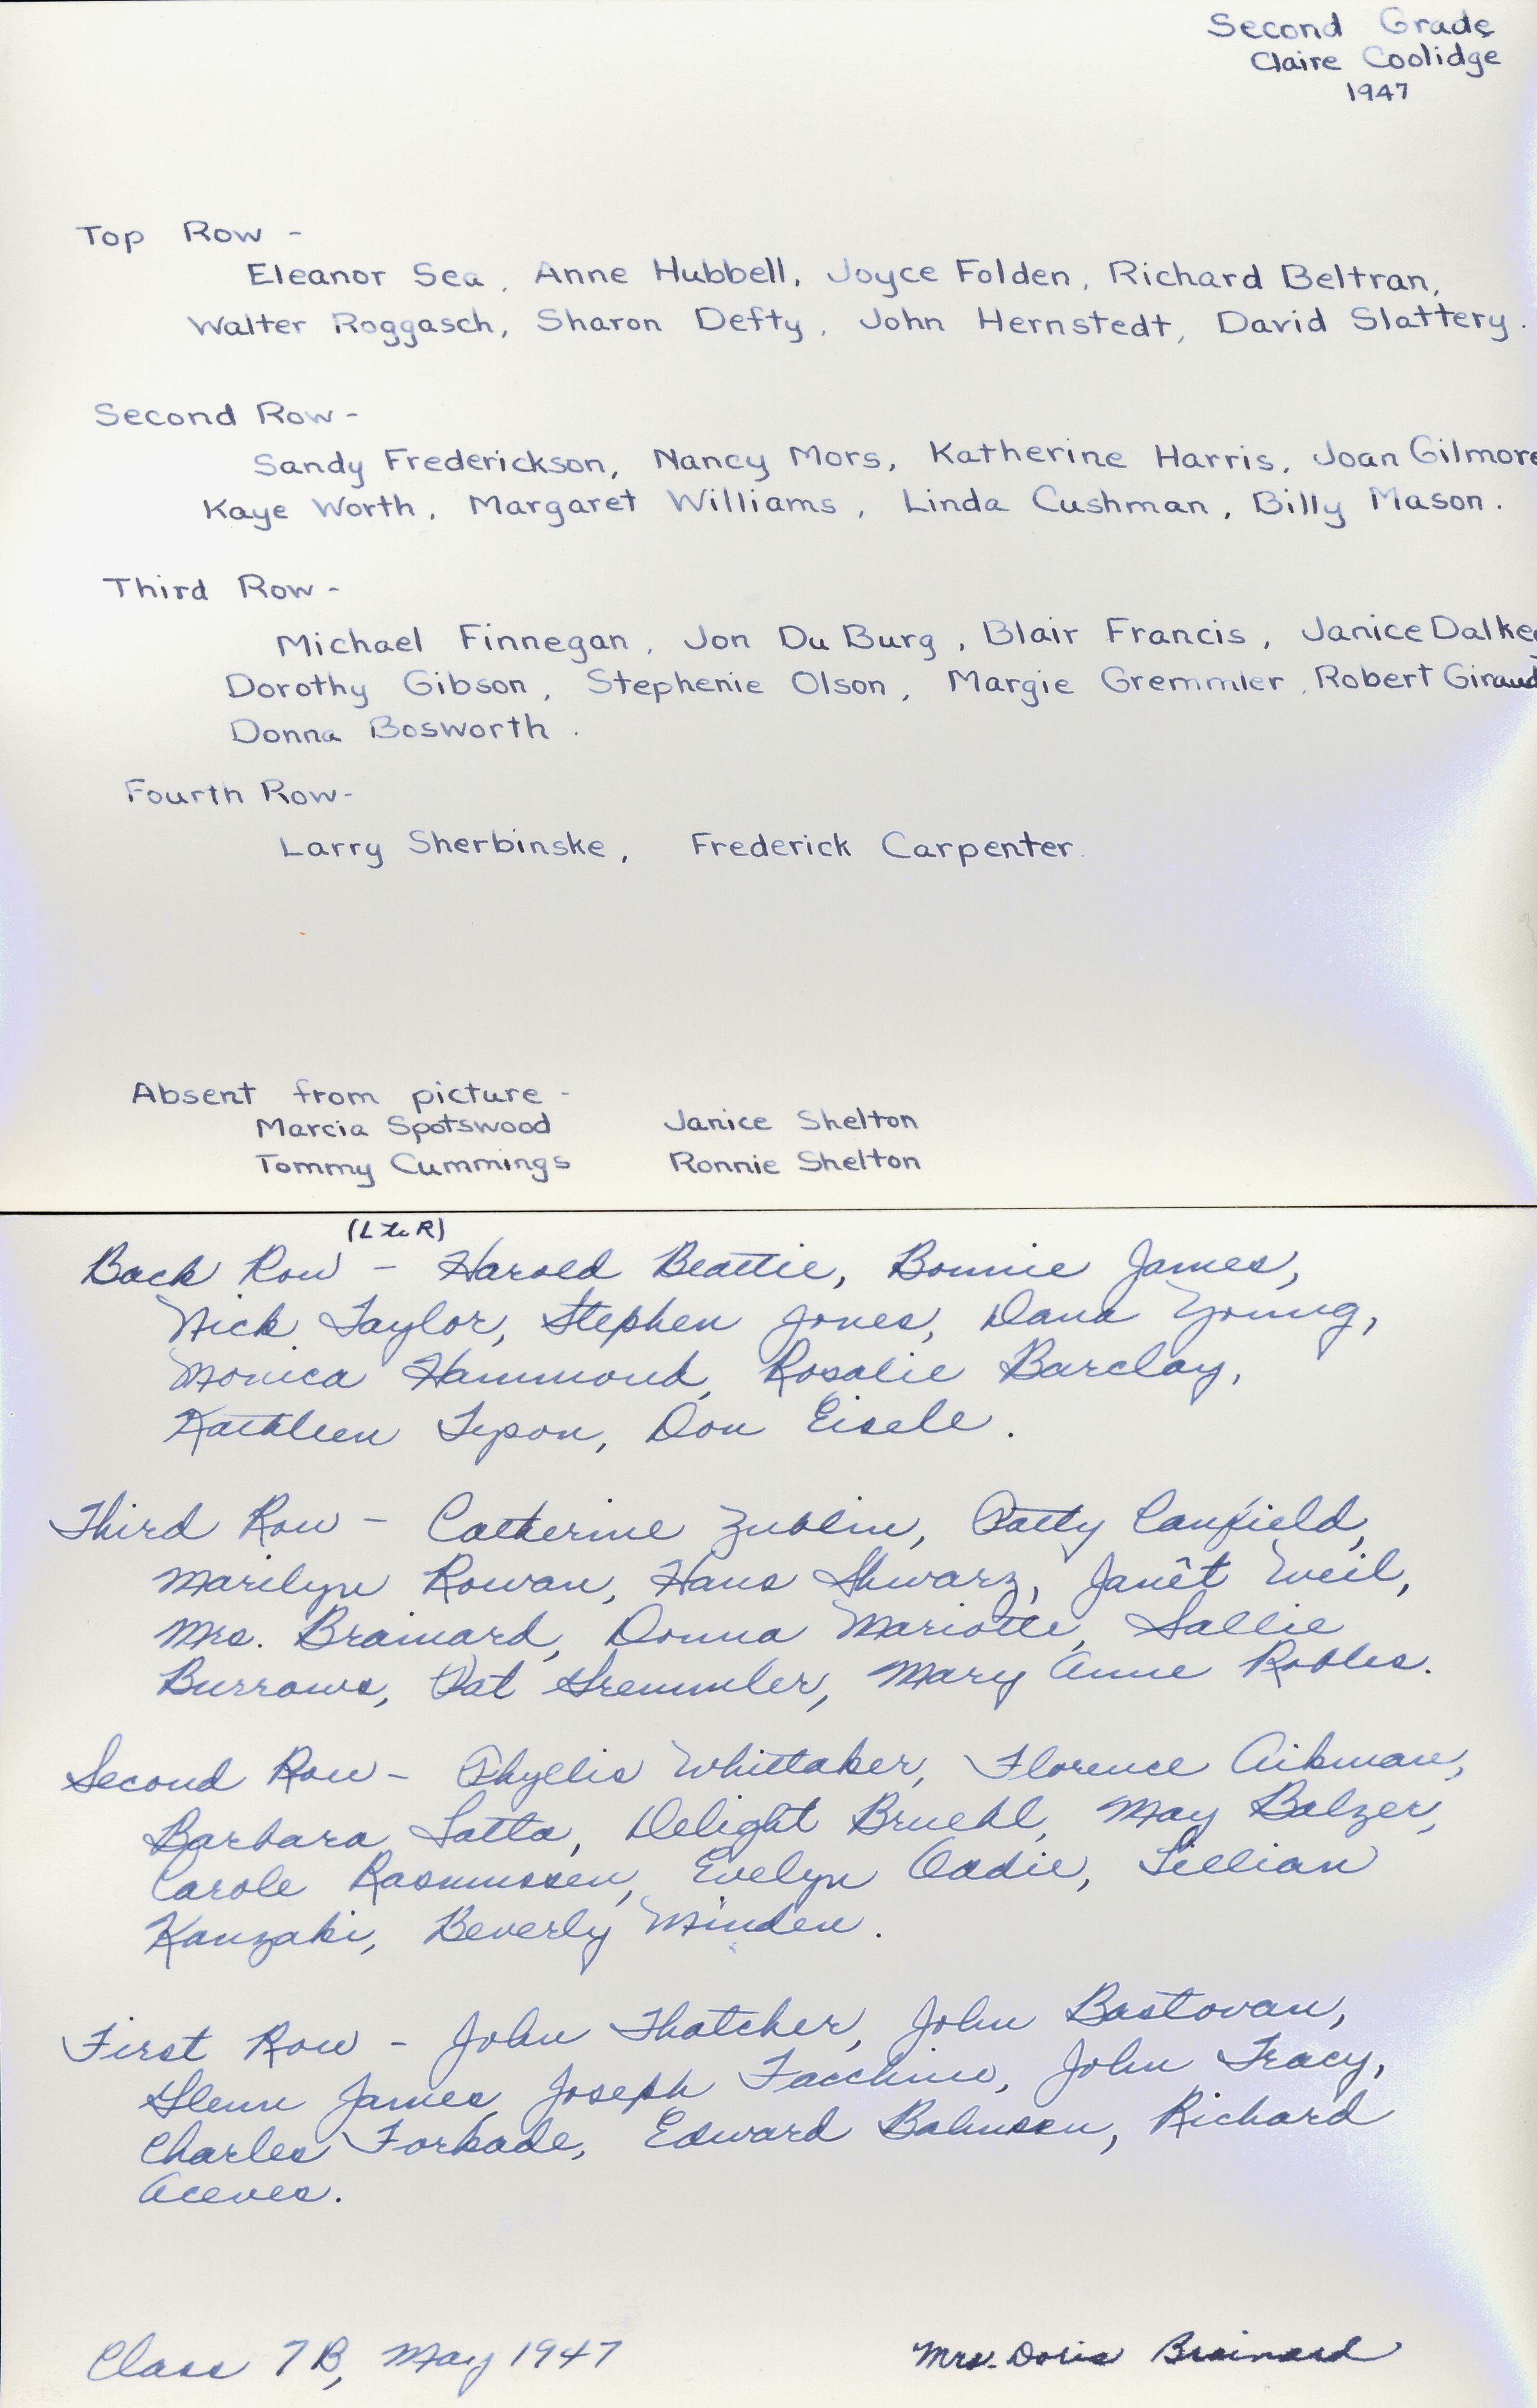 Second Grade
Claire Coolidge
1947
Top Row -
Eleanor Sea, Anne Hubbell, Joyce Folden, Richard Beltran,
Walter Roggasch, Sharon Defty, John Hernstedt, David Slattery.
Second Row -
Sandy Frederickson, Nancy Mors, Katherine Harris, Joan Gilmore
Kaye Worth, Margaret Williams, Linda Cushman, Billy Mason.
Third Row -
Michael Finnegan, Jon Du Burg, Blair Francis, Janice Dalkey
Dorothy Gibson, Stephenie Olson, Margie Gremmler, Robert Giraud
Donna Bosworth.
Fourth Row -
Larry Sherbinske, Frederick Carpenter.
Absent from picture -
Marcia Spotswood Janice Shelton
Tommy Cummings Ronnie Shelton
(L to R)
Back Row - Harold Beattie, Bonnie James,
Nick Taylor, Stephen Jones, Dana Young,
Monica Hammond, Rosalie Barclay,
Kathleen Tyson, Don Eisele.
Third Row - Catherine Zublin, Patty Canfield,
Marilyn Rowan, Hans Shwarz, Janêt Weil,
Mrs. Brainard, Donna Mariotte, Sallie
Burrows, Pat Gremmler, Mary Anne Robles.
Second Row - Phyllis Whittaker, Florence Aikman,
Barbara Latta, Delight Bruehl, May Balzer,
Carole Rasmussen, Evelyn Oddie, Lillian
Kanzaki, Beverly Minden.
First Row - John Thatcher, John Bastovan,
Glenn James, Joseph Facchino, John Tracy,
Charles Forkade, Edward Bahnsen, Richard
Aceves.
Class 7B, May 1947
Mrs. Doris Brainard